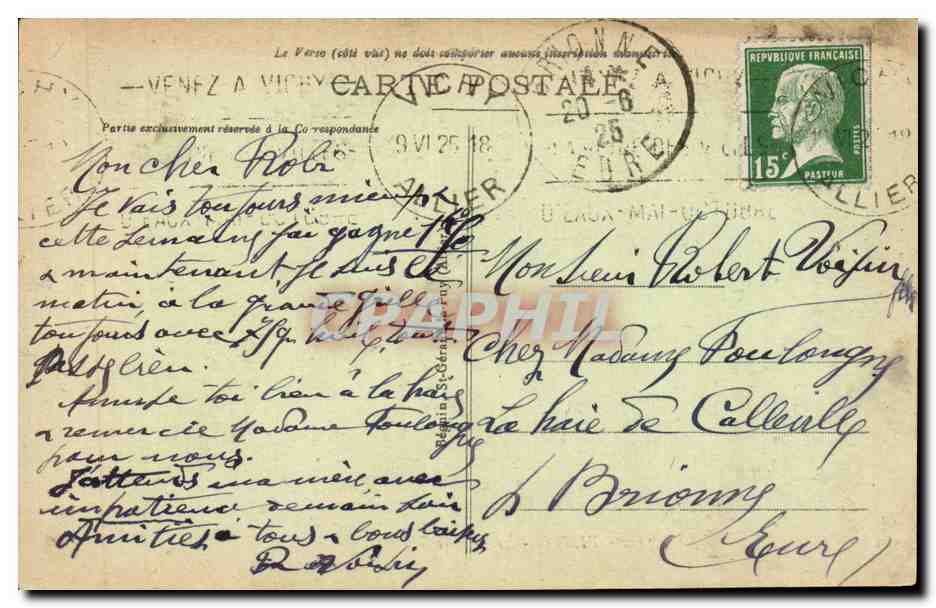 Le Verso (côté vue) ne doit comporter aucune inscription manuscrite
VENEZ A VICHY
CARTE POSTALE
Partie exclusivement réservée à la Correspondance
VICHY
9 VI 25 18
ALLIER
BRIONNE
20 -6
25
EURE
D'EAUX-MAI-OCTOBRE
RÉPUBLIQUE FRANÇAISE
15c
POSTES
PASTEUR
ALLIER
Béguin, St-Géran-le-Puy (Allier)
CPAPHIL
Mon cher Robr
Je vais toujours mieux
cette semaine j'ai gagné 1 k
& maintenant je suis le
matin à la grande grille
toujours avec
passe bien.
Amuse toi bien à la haie
& remercie Madame Foulongne
pour nous.
J'attends ma mère avec
impatience demain soir
Amitiés à tous & bons baisers
R Voisin
Monsieur Robert Voisin
Chez Madame Foulongne
La haie de Calleville
p Brionne
Eure